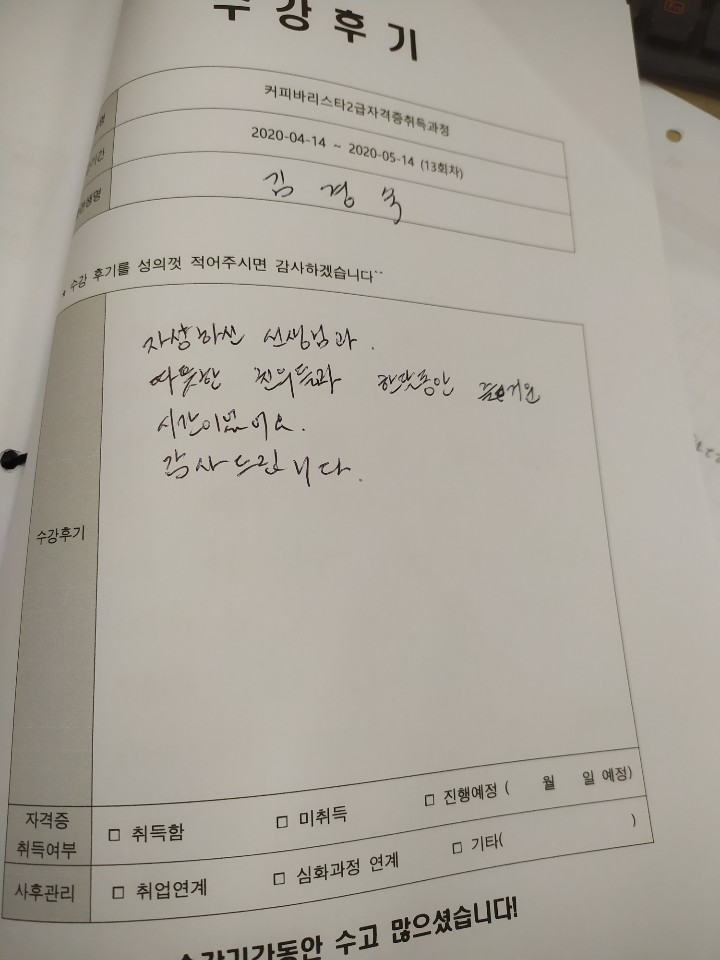 수강후기
커피바리스타2급자격증취득과정
2020-04-14 ~ 2020-05-14 (13회차)
김 경
* 수강 후기를 성의껏 적어주시면 감사하겠습니다^^
자상하신 선생님과.
따뜻한 친의들과 한달동안 즐거운
시간이였어요.
감사드립니다.
수강후기
자격증
취득여부
□ 취득함 □ 미취득 □ 진행예정 ( 월 일 예정)
사후관리 □ 취업연계 □ 심화과정 연계 □ 기타( )
수강기간동안 수고 많으셨습니다!